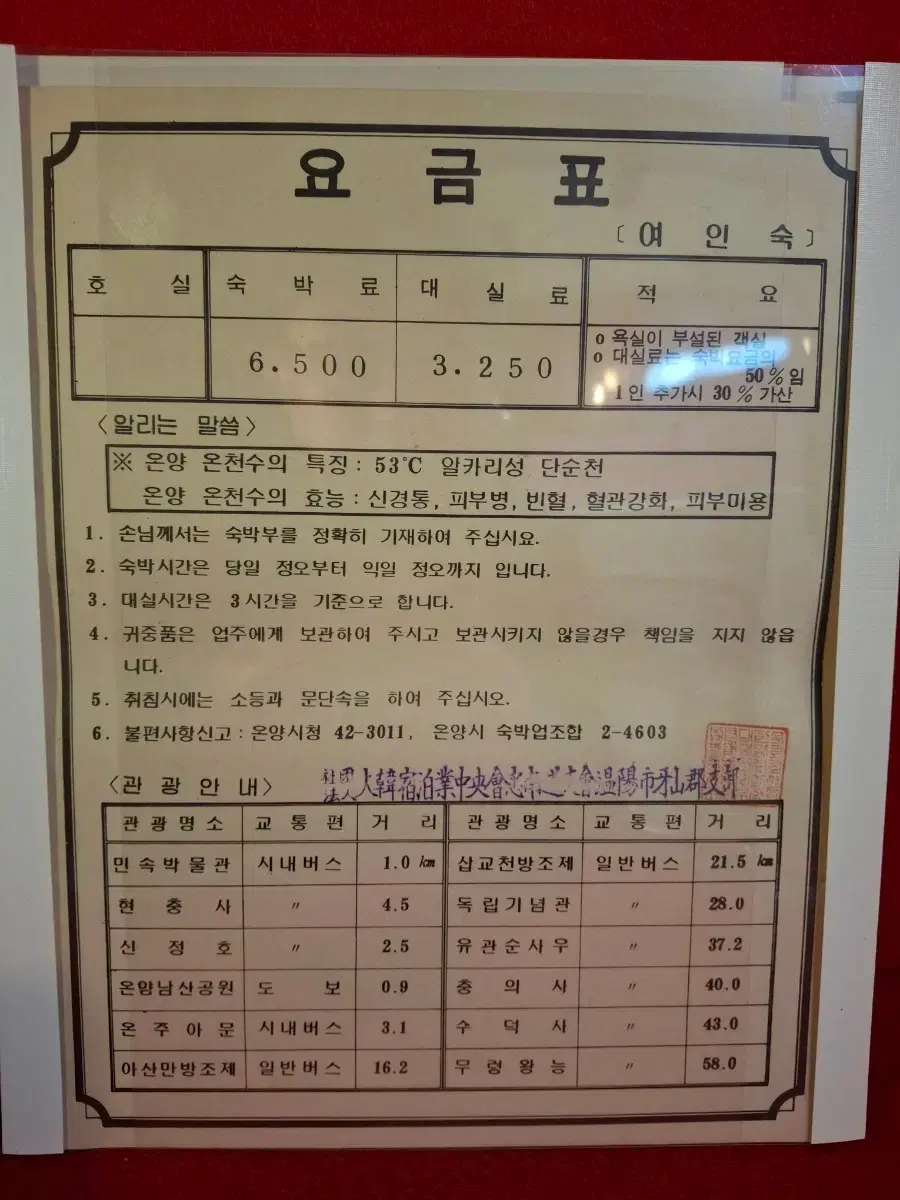 요 금 표
〔여 인 숙〕
호 실 숙 박 료 대 실 료 적 요
6.500 3.250
o 욕실이 부설된 객실
o 대실료는 숙박요금의
50%임
1인 추가시 30%가산
〈알리는 말씀〉
※ 온양 온천수의 특징 : 53℃ 알카리성 단순천
온양 온천수의 효능 : 신경통, 피부병, 빈혈, 혈관강화, 피부미용
1. 손님께서는 숙박부를 정확히 기재하여 주십시요.
2. 숙박시간은 당일 정오부터 익일 정오까지 입니다.
3. 대실시간은 3시간을 기준으로 합니다.
4. 귀중품은 업주에게 보관하여 주시고 보관시키지 않을경우 책임을 지지 않읍
니다.
5. 취침시에는 소등과 문단속을 하여 주십시오.
6. 불편사항신고 : 온양시청 42-3011, 온양시 숙박업조합 2-4603
〈관 광 안 내〉
社團法人 大韓宿泊業中央會忠南道支會溫陽市牙山郡支部
관광명소 교통편 거 리 관광명소 교통편 거 리
민속박물관 시내버스 1.0㎞ 삽교천방조제 일반버스 21.5㎞
현 충 사 〃 4.5 독립기념관 〃 28.0
신 정 호 〃 2.5 유관순사우 〃 37.2
온양남산공원 도 보 0.9 충 의 사 〃 40.0
온주아문 시내버스 3.1 수 덕 사 〃 43.0
아산만방조제 일반버스 16.2 무령왕능 〃 58.0